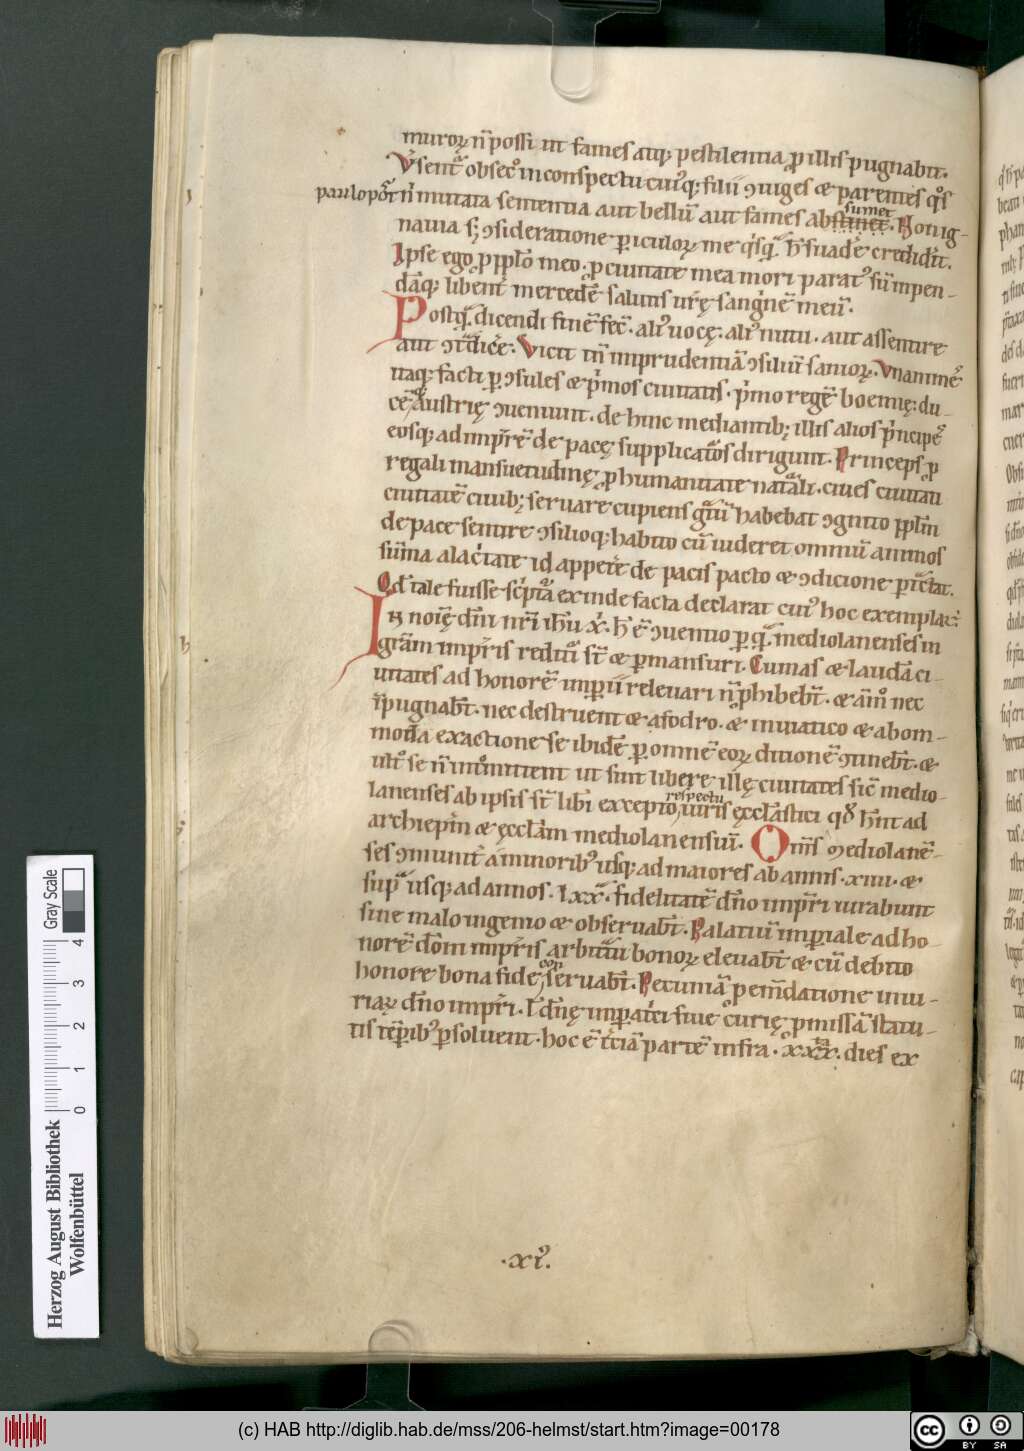 muroꝝ n̄ possit ut fames atq; pestilentia ꝓ illis pugnabit.
Vr̄ sent obsec̄ in conspectu cuiꝰq; filii ꝯiuges & parentes
paulo post n̄ mutata sententia aut bellū aut fames absumet. Non ig-
nauia sꝫ ꝯsideratione ꝑiculoꝝ me suadere credid̄it.
Ipse ego ꝓ pplo meo. ꝓ ciuitate mea mori paratꝰ sū inpen-
dāq; libent̄ mercedē salutis ur̄ę sanguinē meū.
Postq̄ dicendi finē fec̄. alꝰ uocę. alꝰ nutu. aut assentire
aut ꝯtdic̄e. Vicit tn̄ imprudentiā ꝯsiliū sanioꝝ. Vnanimes
itaq; facti ꝑ ꝯsules & p̄mos ciuitatis. p̄mo regē boemię. du-
cē austrię ꝯueniunt. de hinc mediantibꝫ illis alios p̄ncipes
eosq; ad impr̄ē de pacę supplicatōs dirigunt. Princeps ꝓ
regali mansuetudinę ꝓ humanitate natali. ciues ciuitati
ciuitatē ciuibꝫ seruare cupiens gtū habebat ꝯgnito pplm̄
de pace sentire ꝯsilioq; habito cū uideret omniū animos
sūma alac̄tate id appetere de pacis pacto & ꝯdicione ꝑtctat.
Qd tale fuisse sc̄pta exinde facta declarat cuiꝰ hoc exemplar ē.
IN noīe dn̄i nr̄i ihū x̄. h ē ꝯuentio ꝑ q̄ mediolanenses in
gr̄am impr̄is reditū st̄ & ꝑmansuri. Cumas & laudā ci-
uitates ad honorē imꝑii releuari n̄ ꝓhibebt̄. & am̄ nec
īpugnabt̄. nec destruent & a fodro. & uiatico & ab om-
moda exactione se ibidē ꝑ omnē eoꝝ ditionē ꝯtinebt̄. &
ult̄ se n̄ intromittent ut sint liberę illę ciuitates sic̄ medio-
lanenses ab ipsis st̄ libi excepto respectu iuris ęccl̄astici qd hn̄t ad
archiepm̄ & ęccl̄am mediolanensiū. Om̄s mediolanē-
ses ꝯmunit̄ a minoribꝰ usq; ad maiores ab annis. xiiii. &
supra usq; ad annos. lxx. fidelitatē dn̄o impr̄i iurabunt
sine malo ingenio & obseruabt̄. Palatiū imꝑiale ad ho-
norē dom̄ impr̄is arbitratu bonoꝝ eleuabt̄ & cū debito
honore bona fide seruabt̄. Pecuniā ꝓ em̄datione iniu-
riaꝝ dn̄o impr̄i. l dn̄ę imꝑatrici siue curię ꝓmissā statu-
tis tēꝑibꝰ ꝑsoluent. hoc ē tciā partē infra. xxx. dies ex
.xi.
Herzog August Bibliothek
Wolfenbüttel
0 1 2 3 4
Gray Scale
(c) HAB http://diglib.hab.de/mss/206-helmst/start.htm?image=00178
cc BY SA